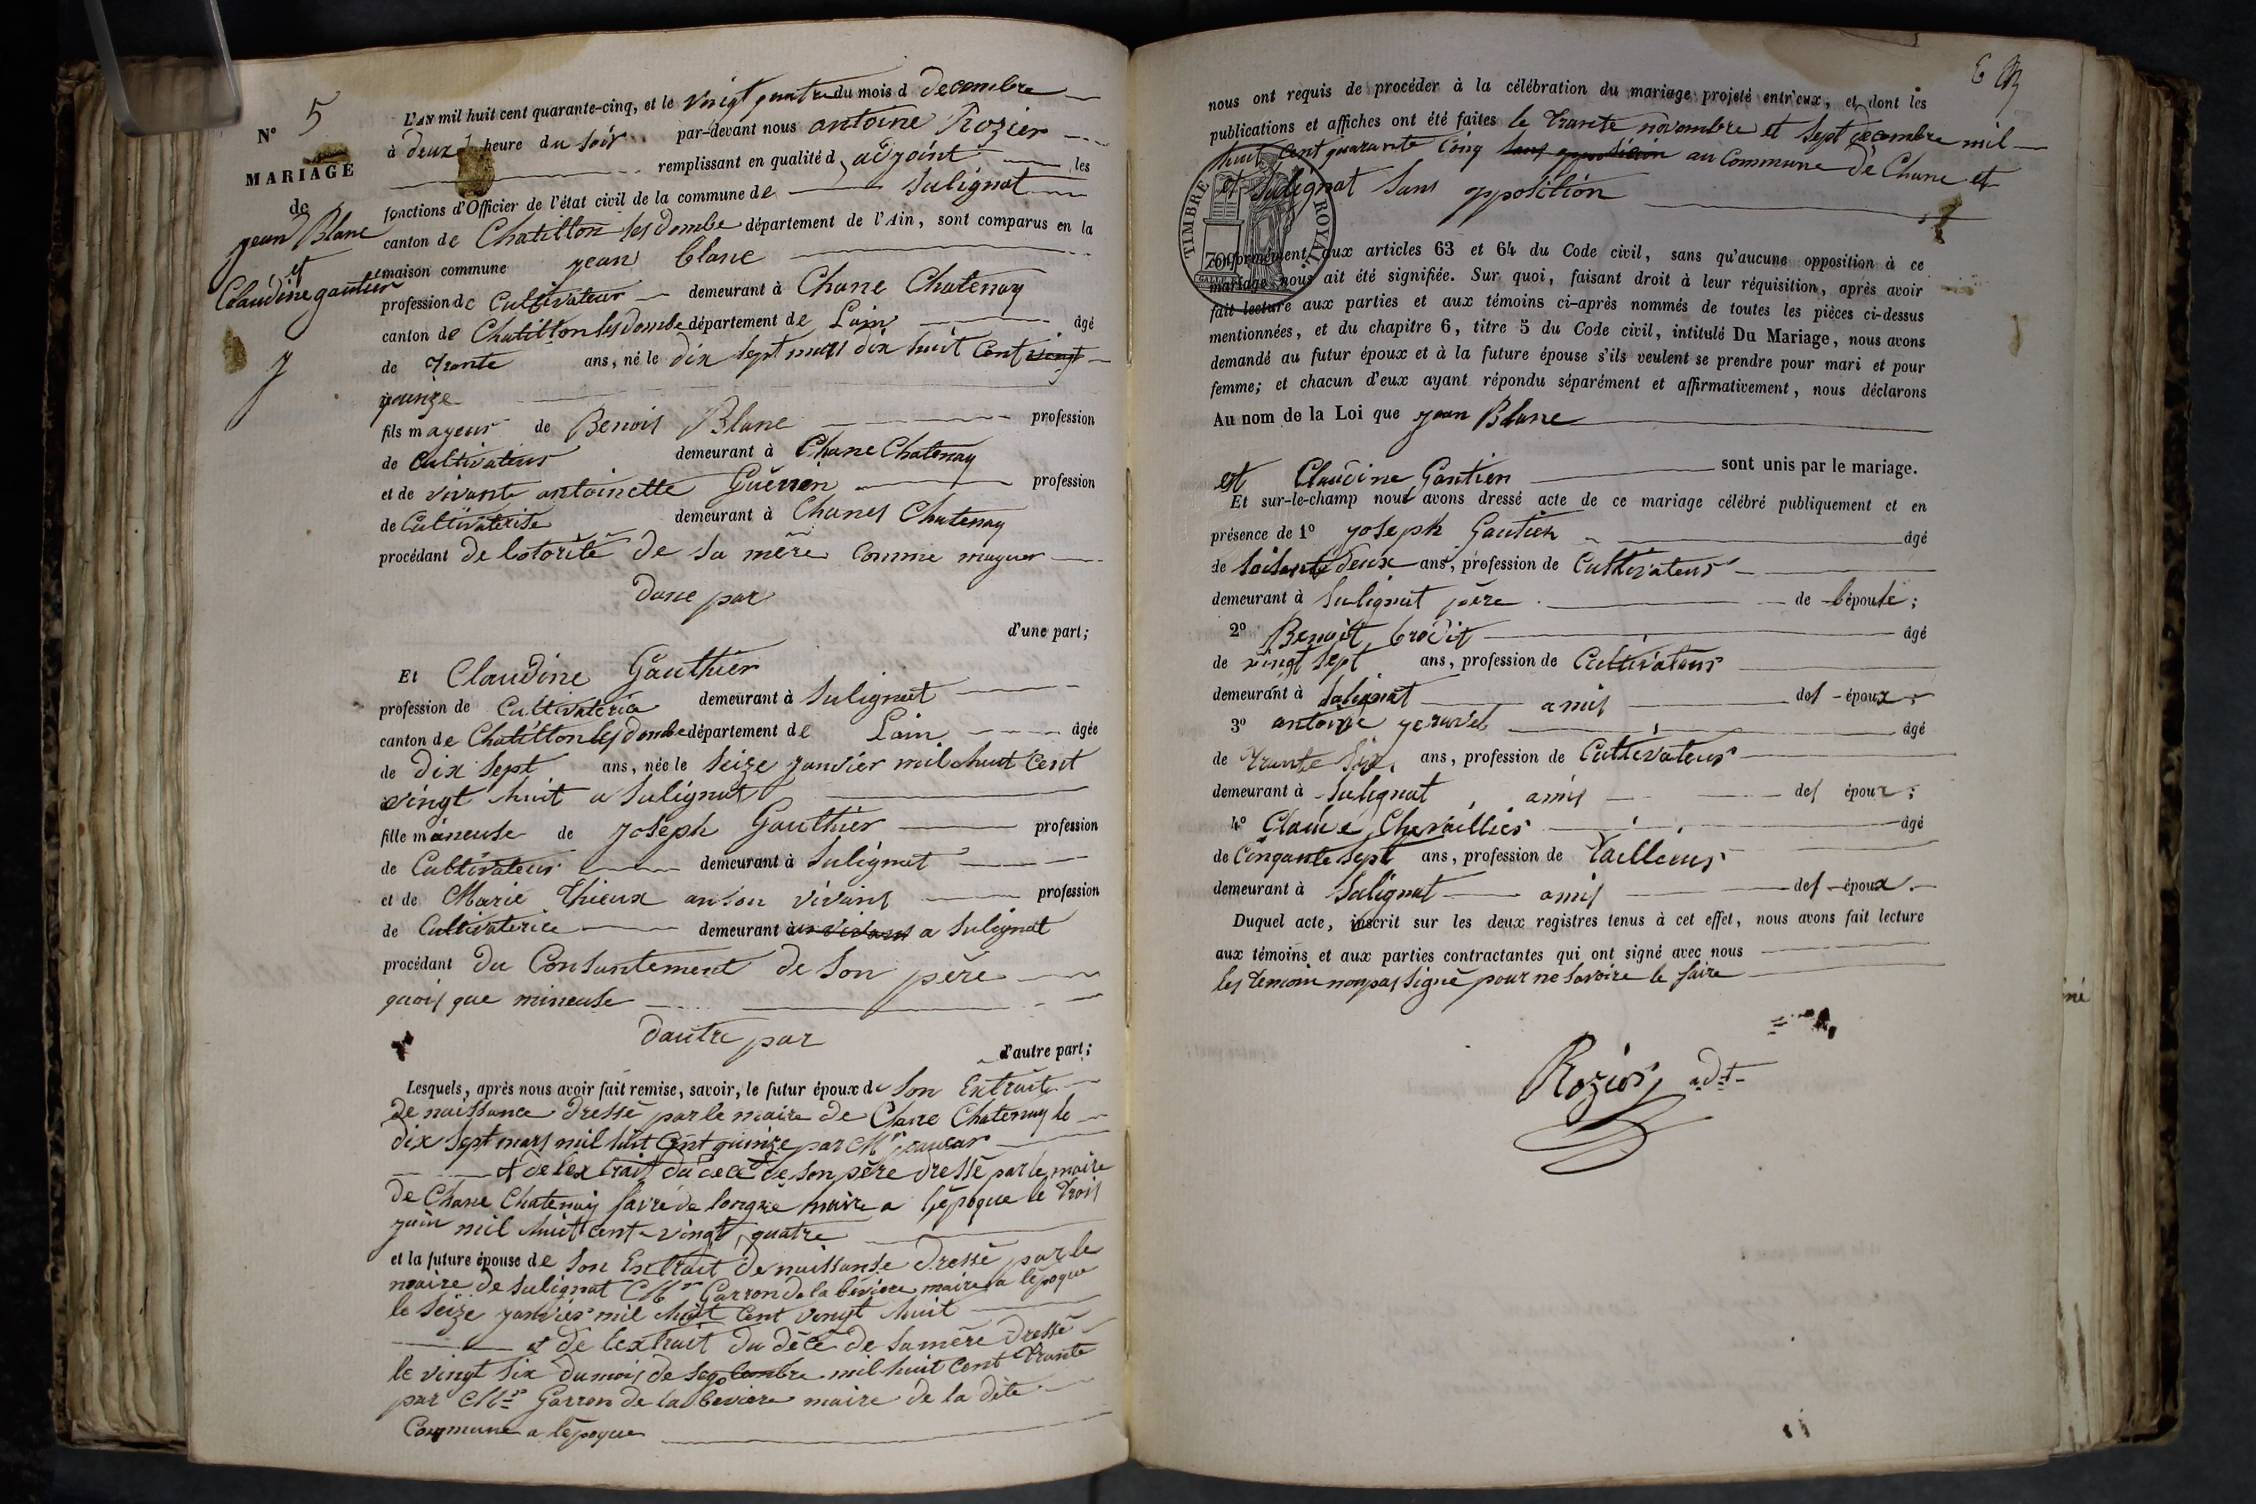 N° 5
MARIAGE
de
jean Blanc
et
Claudine gautier
L'AN mil huit cent quarante-cinq, et le vingt quatre du mois d decembre
à deux heure du soir par-devant nous antoine Rozier
remplissant en qualité d adjoint les
fonctions d'Officier de l'état civil de la commune de Sulignat
canton de Chatillon les dombe département de l'Ain, sont comparus en la
maison commune jean blanc
profession de Cultivateur demeurant à Chane Chatenay
canton de Chatillon les dombe département de Lain âgé
de Trante ans, né le dix sept mars dix huit Cent vingt
quinze
fils mayeur de Benois Blanc profession
de Cultivateur demeurant à Chane Chatenay
et de vivante antoinette Guerrin profession
de Cultivaterise demeurant à Chanes Chatenay
procédant de lotorité de sa mère Comme mayeur
dune par
d'une part;
Et Claudine Gauthier
profession de Cultivaterice demeurant à Sulignat
canton de Chatillon les dombe département de Lain âgée
de dix sept ans, née le seize janvier mil huit Cent
vingt huit a Sulignat
fille mineuse de joseph Gauthier profession
de Cultivateur demeurant à Sulignat
et de Marie Thieux anson vivant profession
de Cultivaterice demeurant à a Sulignat
procédant du Consantement de son père
quois que mineuse
dautre par
d'autre part;
Lesquels, après nous avoir fait remise, savoir, le futur époux de son Extrait
de naissance dressé par le maire de Chane Chatenay le
dix sept mars mil huit Cent quinze par Mr
et de lextrait du décé de son père dressé par le maire
de Chane Chatenay favre de longrie maire a lépoque le trois
juin mil huit cent vingt quatre
et la future épouse de son Extrait de naissanse dressé par le
maire de Sulignat Mr Garron de la bévière maire a lépoque
le seize janvier mil huit Cent vingt huit
et de lextrait du décé de sa mère dressé
le vingt six du mois de septembre mil huit Cent trante
par Mr Garron de la beviere maire de la dite
Commune a lépoque
nous ont requis de procéder à la célébration du mariage projeté entr'eux, et dont les
publications et affiches ont été faites le trante novembre et sept décembre mil
huit Cent quarante Cinq sans opposition au Commune de Chane et
et Sulignat sans opposition
TIMBRE ROYAL
conformément aux articles 63 et 64 du Code civil, sans qu'aucune opposition à ce
mariage nous ait été signifiée. Sur quoi, faisant droit à leur réquisition, après avoir
fait lecture aux parties et aux témoins ci-après nommés de toutes les pièces ci-dessus
mentionnées, et du chapitre 6, titre 5 du Code civil, intitulé Du Mariage, nous avons
demandé au futur époux et à la future épouse s'ils veulent se prendre pour mari et pour
femme; et chacun d'eux ayant répondu séparément et affirmativement, nous déclarons
Au nom de la Loi que jean Blanc
et Claudine Gautier sont unis par le mariage.
Et sur-le-champ nous avons dressé acte de ce mariage célébré publiquement et en
présence de 1° joseph Gautier âgé
de soisente deux ans, profession de Cultivateur
demeurant à Sulignat père de lépouse;
2° Benoit brodit âgé
de vingt sept ans, profession de Cultivateur
demeurant à Sulignat amis des époux;
3° antoine âgé
de trante six ans, profession de Cultivateur
demeurant à Sulignat amis des époux;
4° Claude Chevallier âgé
de Cinqante sept ans, profession de tailleur
demeurant à Salignat amis des époux.
Duquel acte, inscrit sur les deux registres tenus à cet effet, nous avons fait lecture
aux témoins et aux parties contractantes qui ont signé avec nous
les temoin nonpas signé pour ne savoire le faire
Rozier adt